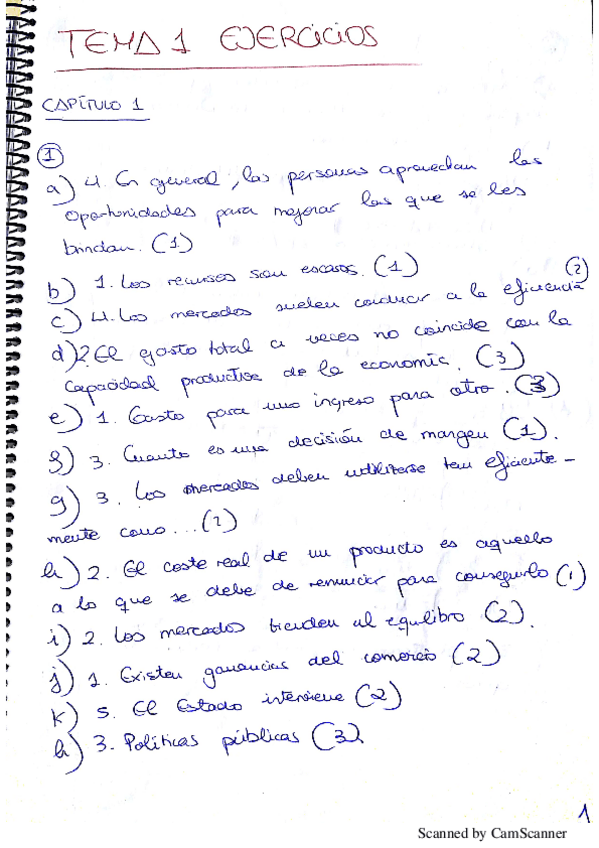 TEMA 1 EJERCICIOS
CAPÍTULO 1
1
a) 4. En general, las personas aprovechan las
oportunidades para mejorar las que se les
brindan. (1)
b) 1. Los recursos son escasos. (1)
c) 4. Los mercados suelen conducir a la eficiencia (2)
d) 2 El gasto total a veces no coincide con la
capacidad productiva de la economía. (3)
e) 1. Gasto para uno ingreso para otro. (3)
f) 3. Cuanto es una decisión de margen (1).
g) 3. Los mercados deben utilizarse tan eficiente-
mente como... (2)
h) 2. El coste real de un producto es aquello
a lo que se debe de renunciar para conseguirlo (1)
i) 2. Los mercados tienden al equilibro (2).
j) 1. Existen ganancias del comercio (2)
k) 5. El Estado interviene (2)
h) 3. Políticas públicas (3)
1
Scanned by CamScanner